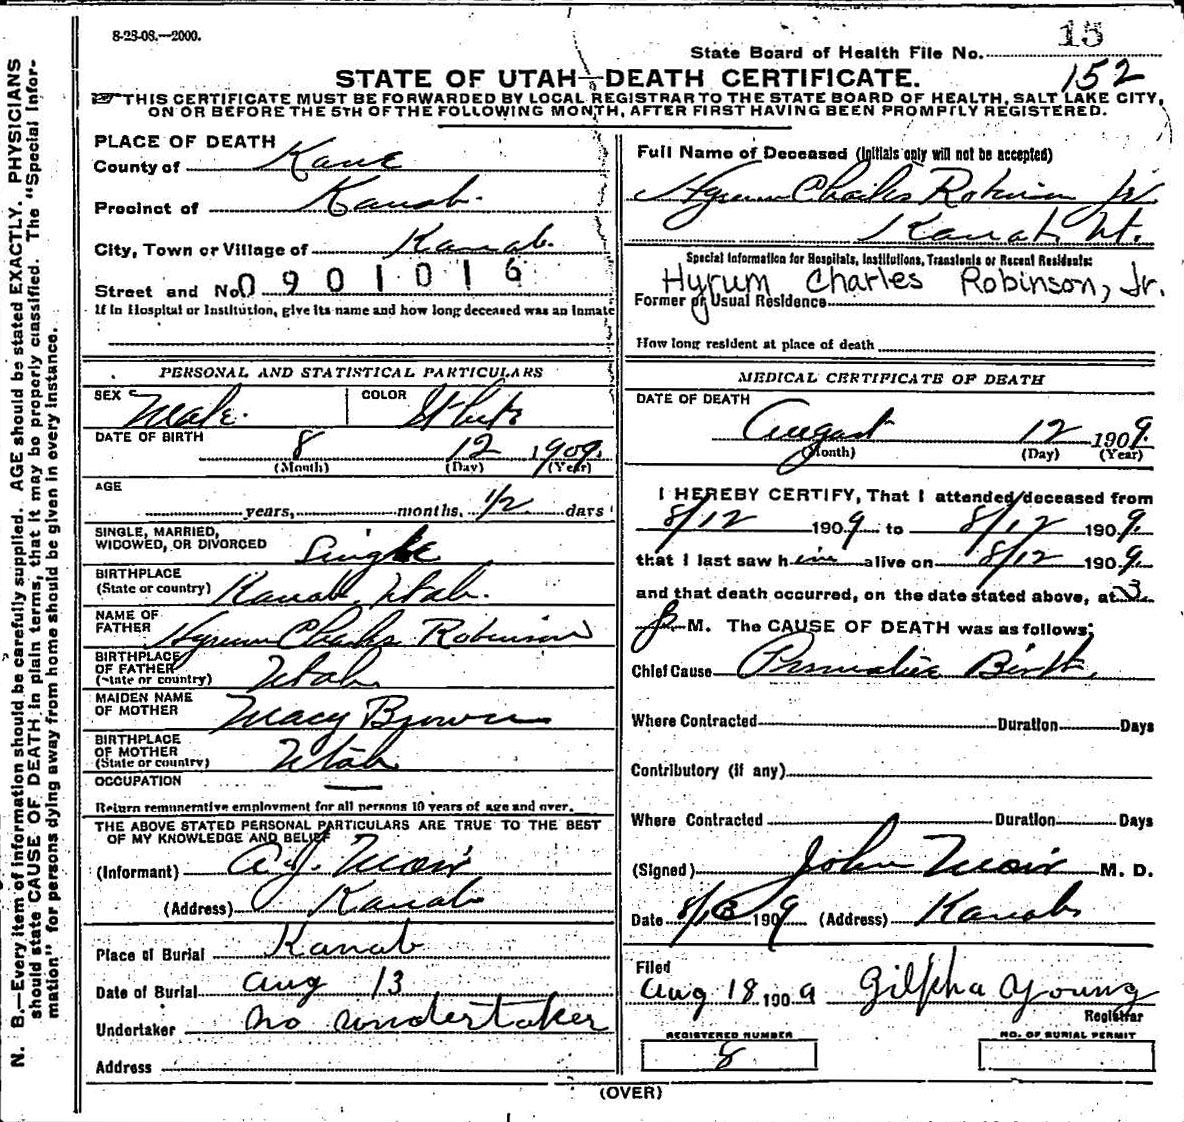 8-28-08.—2000.
State Board of Health File No. 15
152
STATE OF UTAH—DEATH CERTIFICATE.
THIS CERTIFICATE MUST BE FORWARDED BY LOCAL REGISTRAR TO THE STATE BOARD OF HEALTH, SALT LAKE CITY,
ON OR BEFORE THE 5TH OF THE FOLLOWING MONTH, AFTER FIRST HAVING BEEN PROMPTLY REGISTERED.
N. B.—Every item of information should be carefully supplied. AGE should be stated EXACTLY. PHYSICIANS
should state CAUSE OF DEATH in plain terms, that it may be properly classified. The "Special Infor-
mation" for persons dying away from home should be given in every instance.
PLACE OF DEATH
County of Kane
Precinct of Kanab.
City, Town or Village of Kanab.
Street and No. 0901016
If in Hospital or Institution, give its name and how long deceased was an inmate
PERSONAL AND STATISTICAL PARTICULARS
SEX Male. COLOR White
DATE OF BIRTH 8 12 1909.
(Month) (Day) (Year)
AGE
years, months, 1/2 days
SINGLE, MARRIED,
WIDOWED, OR DIVORCED Single
BIRTHPLACE
(State or country) Kanab, Utah.
NAME OF
FATHER Hyrum Charles Robinson
BIRTHPLACE
OF FATHER
(State or country) Utah
MAIDEN NAME
OF MOTHER Macy Brown
BIRTHPLACE
OF MOTHER
(State or country) Utah
OCCUPATION —
Return remunerative employment for all persons 10 years of age and over.
THE ABOVE STATED PERSONAL PARTICULARS ARE TRUE TO THE BEST
OF MY KNOWLEDGE AND BELIEF
(Informant) A. J. Moir
(Address) Kanab
Place of Burial Kanab
Date of Burial Aug 13
Undertaker no undertaker
Address
Full Name of Deceased (Initials only will not be accepted)
Hyrum Charles Robinson Jr.
Kanab, Ut.
Special Information for Hospitals, Institutions, Transients or Recent Residents:
Hyrum Charles Robinson, Jr.
Former or Usual Residence
How long resident at place of death
MEDICAL CERTIFICATE OF DEATH
DATE OF DEATH
August 12 1909.
(Month) (Day) (Year)
I HEREBY CERTIFY, That I attended deceased from
8/12 1909 to 8/12 1909.
that I last saw him alive on 8/12 1909.
and that death occurred, on the date stated above, at 3
P. M. The CAUSE OF DEATH was as follows:
Chief Cause Premature Birth
Where Contracted Duration Days
Contributory (if any)
Where Contracted Duration Days
(Signed) John Moir M. D.
Date 8/13 1909 (Address) Kanab
Filed
Aug 18, 1909 Gilpha Young
Registrar
REGISTERED NUMBER
8
NO. OF BURIAL PERMIT
(OVER)